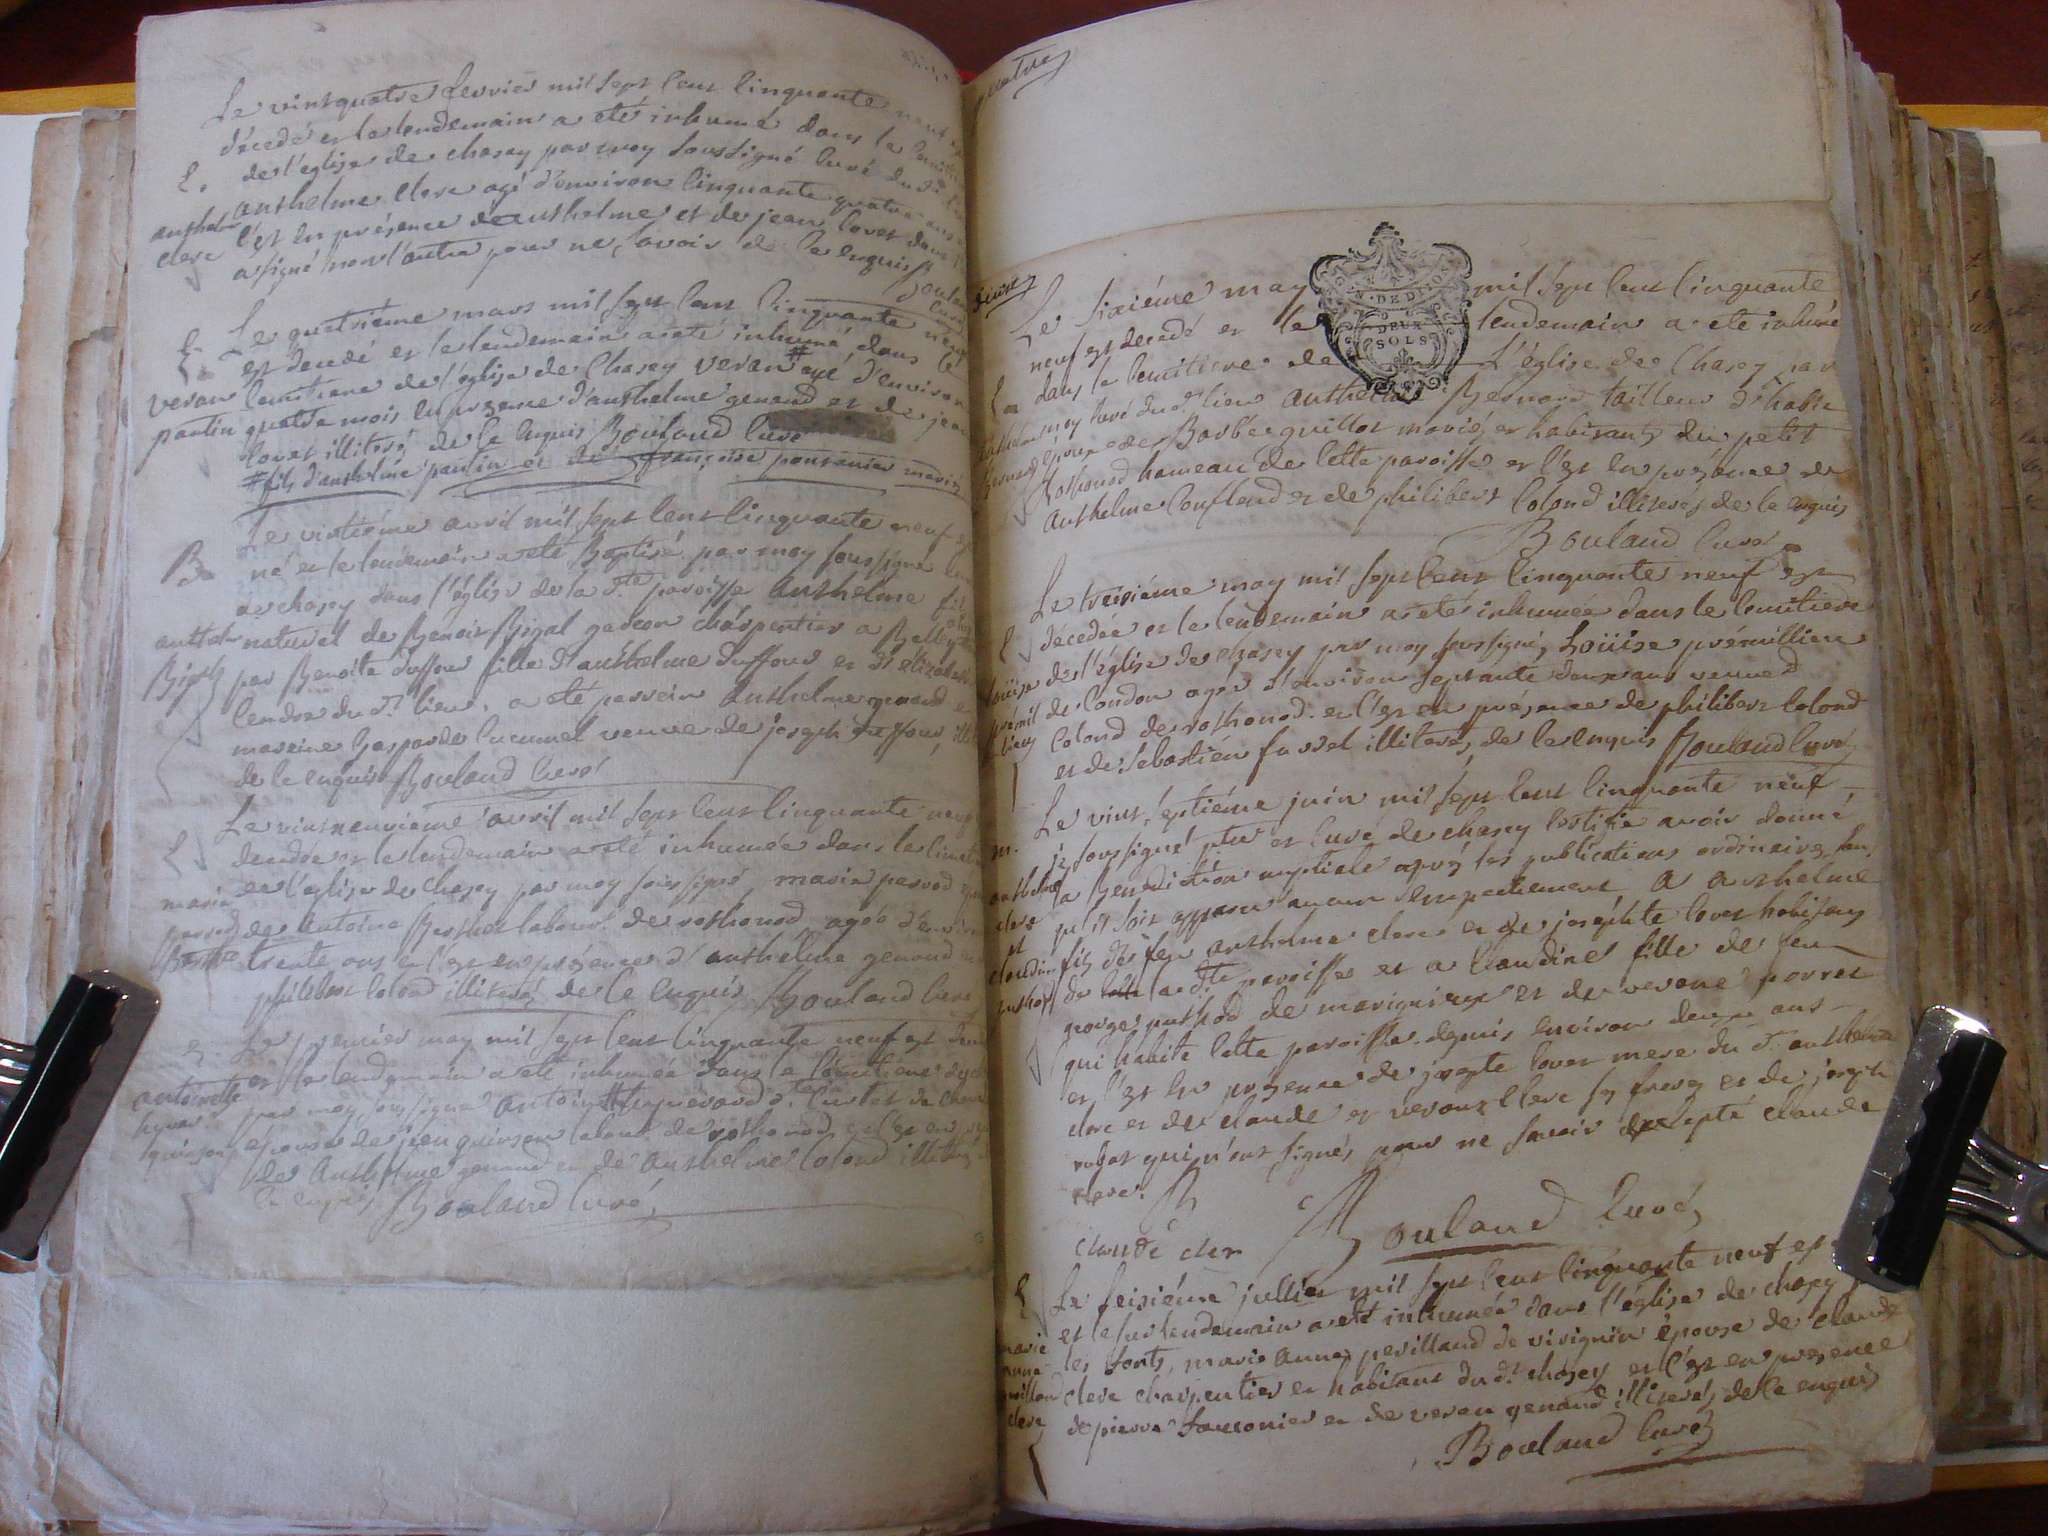 Le vintquatre fevrier mil sept cent cinquante neuf
décedé et le lendemain a eté inhumé dans le
E. de l'eglise de chasey par moy soussigné curé du dt
anthelme clerc agé d'environ cinquante quatre ans
anthelme clerc
c'est en présence de anthelme et de jean lovet dont
a signé non l'autre pour ne savoir de ce enquis
Bouland curé
Le quatriéme mars mil sept cent cinquante neuf
E. est decedé et le lendemain a eté inhumé dans le
cemitiere de l'église de Chasey veran # agé d'environ
veran pantin
quatre mois en presence d'anthelme genand et de jean
lovet illiterés de ce enquis Bouland curé
# fils d'anthelme pantin et de françoise ponsanier mariés
Le vintiéme avril mil sept cent cinquante neuf est
B. né et le lendemain a eté Baptisé par moy soussigné curé
de chasey dans l'église de la dte paroisse anthelme fils
anthelme Bigal
naturel de Benoit Bigal garcon charpentier a Belley
par Benoite duffour fille d'anthelme duffour et d'élizabeth
cendre du dt lieu, a eté parrein anthelme genand et
mareine Gasparde cucumel veuve de joseph duffour,
de ce enquis Bouland curé
Le vintneuviéme avril mil sept cent cinquante neuf
E. decedée et le lendemain a eté inhumée dans le
de l'église de chasey par moy soussigné marie perrod
marie perrod Berthet
de antoine Berthet labour. de rothonod agée d'environ
trente ans et c'est en présence d'anthelme genand et
philibert colond illiterés de ce enquis Bouland curé
E. Le premier may mil sept cent cinquante neuf est
et le lendemain a eté inhumée dans le cemitiere
antoinette
par moy soussigné antoin
épouse de jean guinson labour. de rothonod et c'est en
guinson
de Anthelme genand et de anthelme colond
ce enquis Bouland curé
Le sixiéme may mil sept cent cinquante
DE DIJON
DEUX
SOLS
neuf est decedé et le lendemain a eté inhumé
E. dans le cemitiere de L'église de Chasey par
moy curé du dt lieu anthelme Bernard tailleur d'habit
anthelme Bernard
époux de Barbe guillot mariés et habitants du petit
Rothonod hameau de cette paroisse et c'est en présence de
anthelme et de philibert colond illiterés de ce enquis
Bouland curé
Le treisiéme may mil sept cent cinquante neuf est
E. décedée et le lendemain a eté inhumée dans le cemitiere
de l'église de chasey par moy soussigné, Loüise prémillieu
Loüise prémillieu
de condon agée d'environ septante deux ans veuve d
colond de rothonod et c'est en présence de philibert colond
et de sebastien furrel illiterés, de ce enquis Bouland curé
Le vint septiéme juin mil sept cent cinquante neuf
m. je soussigné ptre et curé de chasey certifie avoir donné
la Benediction nuptiale aprés les publications ordinaires sans
anthelme clerc et claudine puthod
qu'il soit apparu aucun empechement a anthelme
fils de feu anthelme clerc et de joséphte lovet habitans
de la dte paroisse et a claudine fille de feu
george puthod de marignieu et de verone porret
qui habite cette paroisse depuis environ deux ans
et c'est en présence de josephte lovet mere du dt anthelme
clerc et de claude et veran clerc ses freres et de joseph
rubat qui n'ont signés pour ne savoir excepté claude
clerc.
claude cler Bouland curé
E. Le seisiéme juillet mil sept cent cinquante neuf est
et le surlendemain a eté inhumée dans l'église de chasey
les fonts, marie anne pevilland de virignin épouse de claude
marie anne pevilland clerc
clerc charpentier et habitant du dt chasey et c'est en presence
de pierre et de veran genand illiterés de ce enquis
Bouland curé